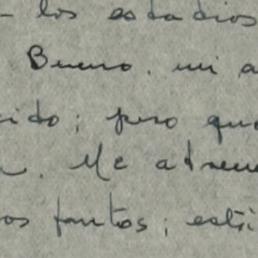 los estadios
Bueno. mi a
ido; pero que
. Me atreve
os fantos; está